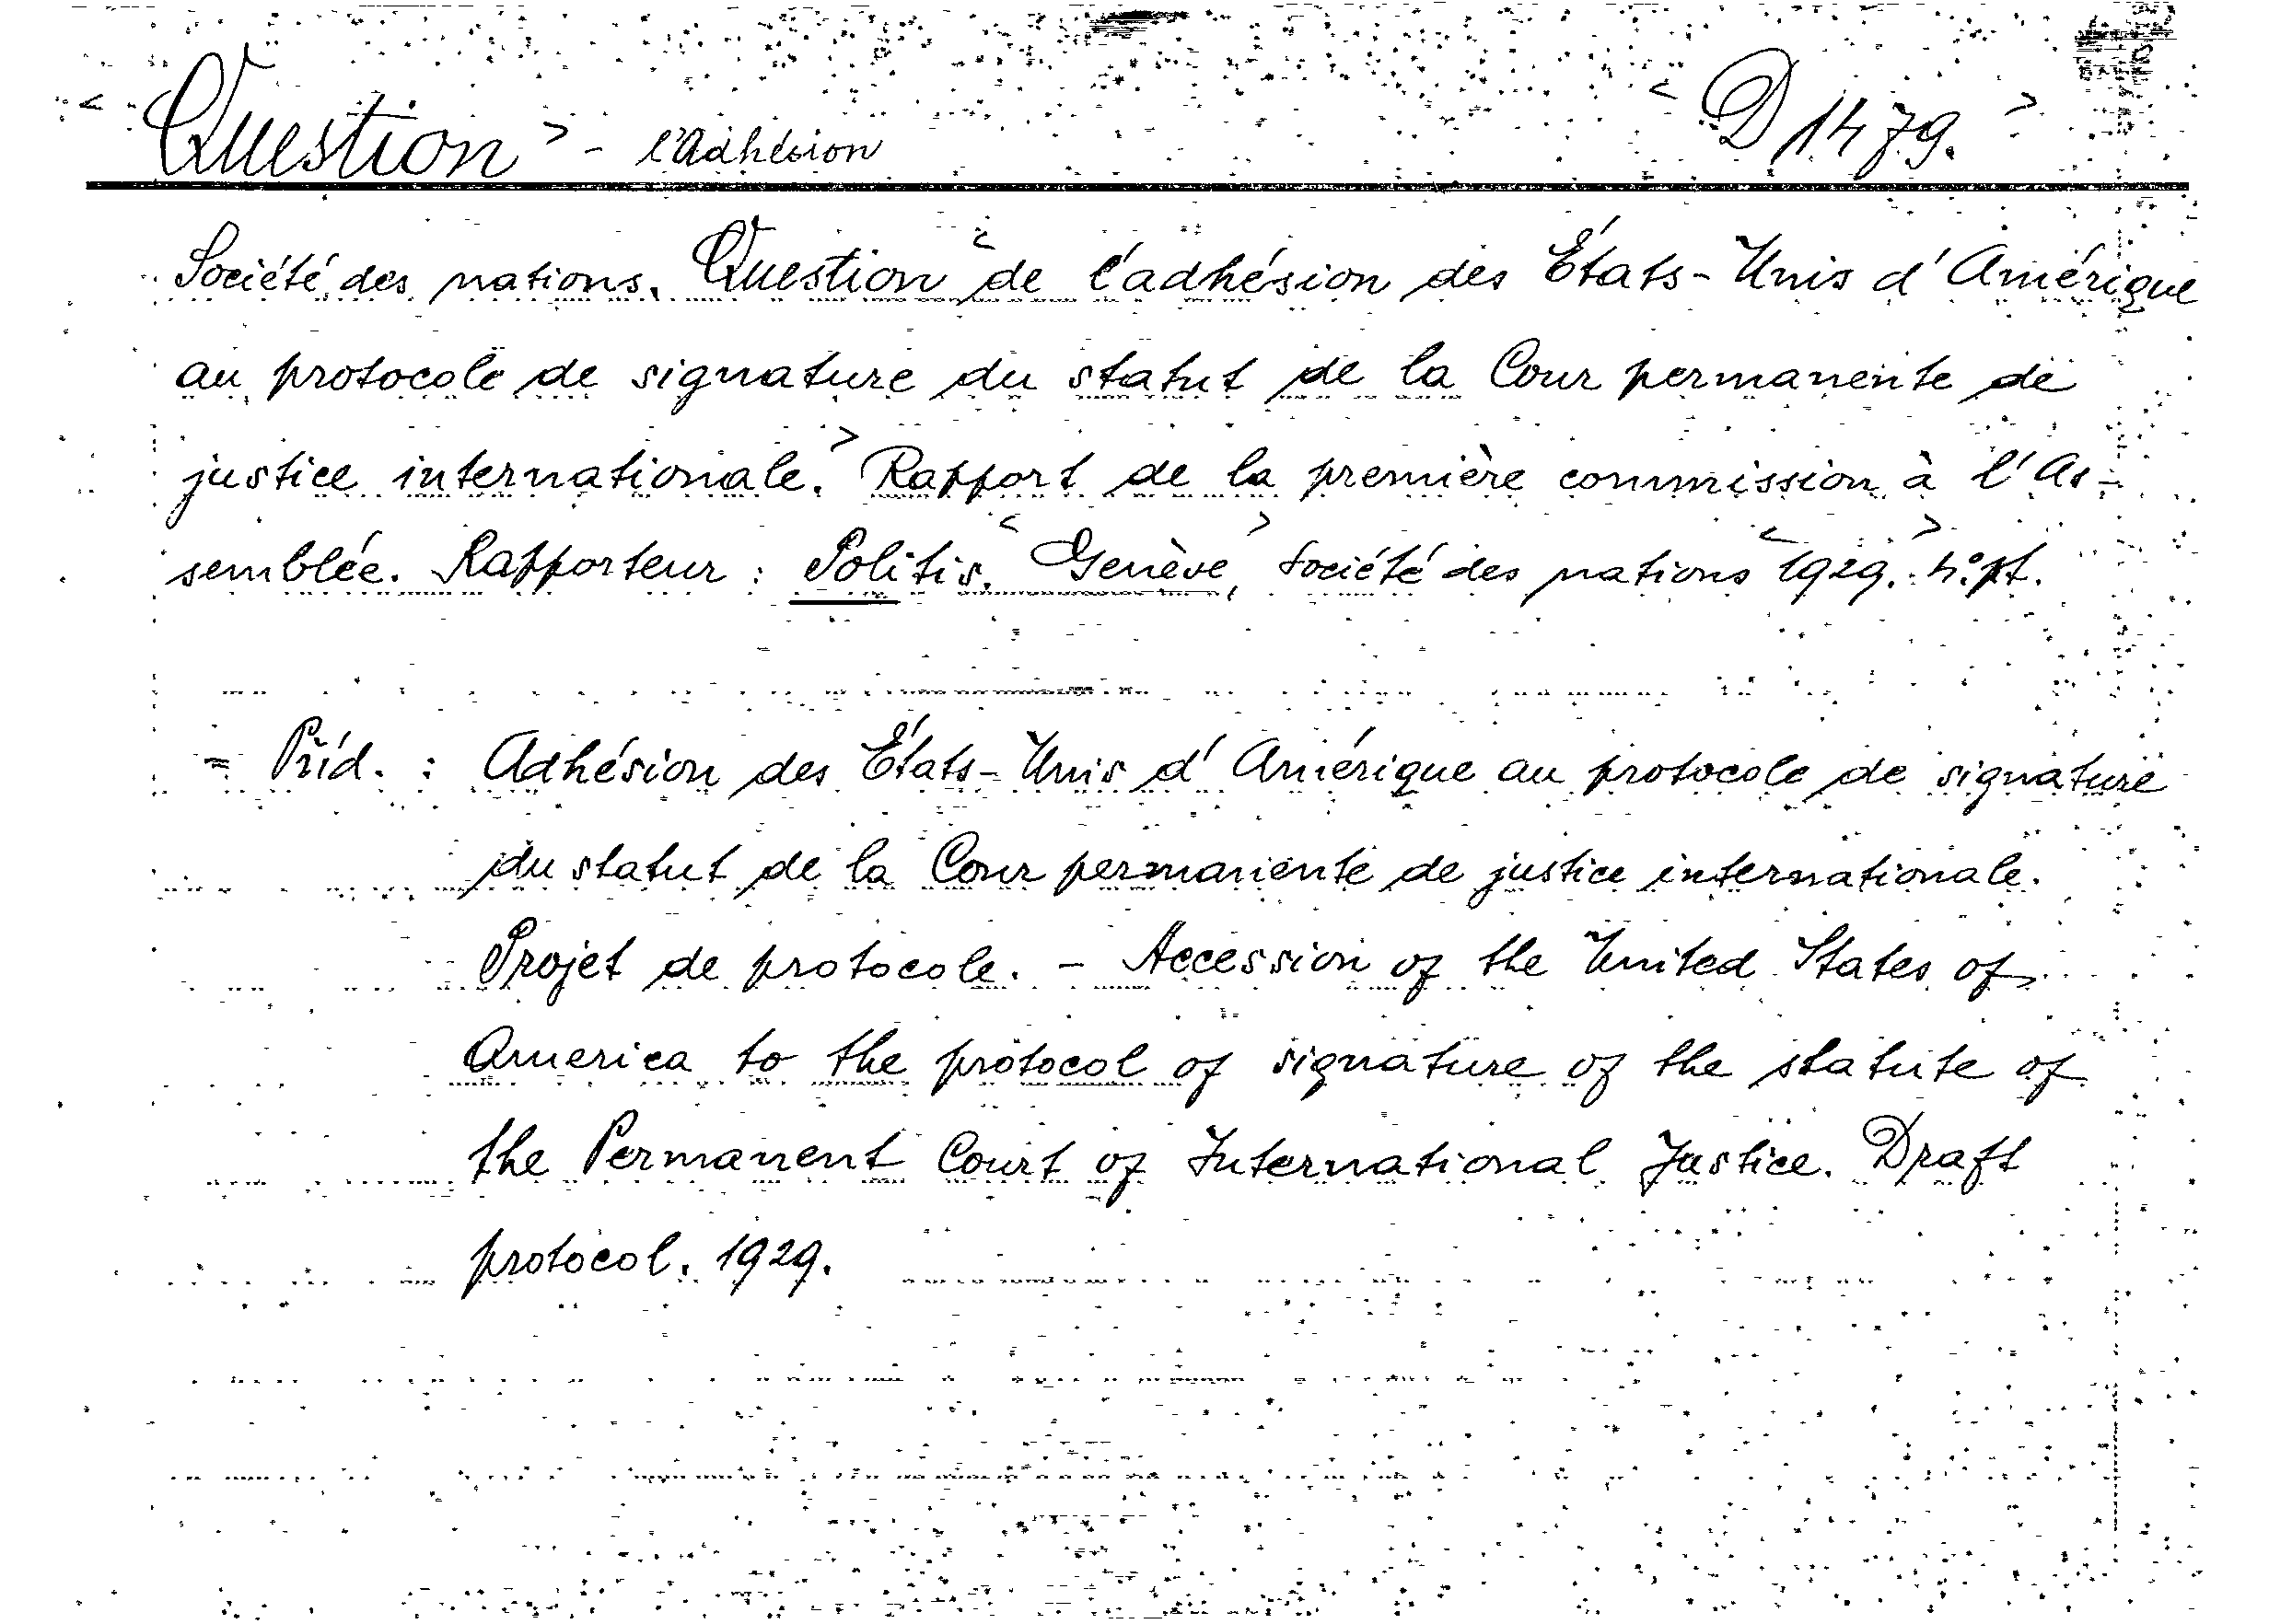 < Question > - l'Adhésion < D 1479. >
Société des nations. Question < de l'adhésion des États-Unis d'Amérique
au protocole de signature du statut de la Cour permanente de
justice internationale. > Rapport de la première commission à l'As-
semblée. Rapporteur : Politis. < Genève, > Société des nations < 1929. > 4°. pt.
= Příd. : Adhésion des États-Unis d'Amérique au protocole de signature
du statut de la Cour permanente de justice internationale.
Projet de protocole. - Accession of the United States of
America to the protocol of signature of the statute of
the Permanent Court of International Justice. Draft
protocol. 1929.